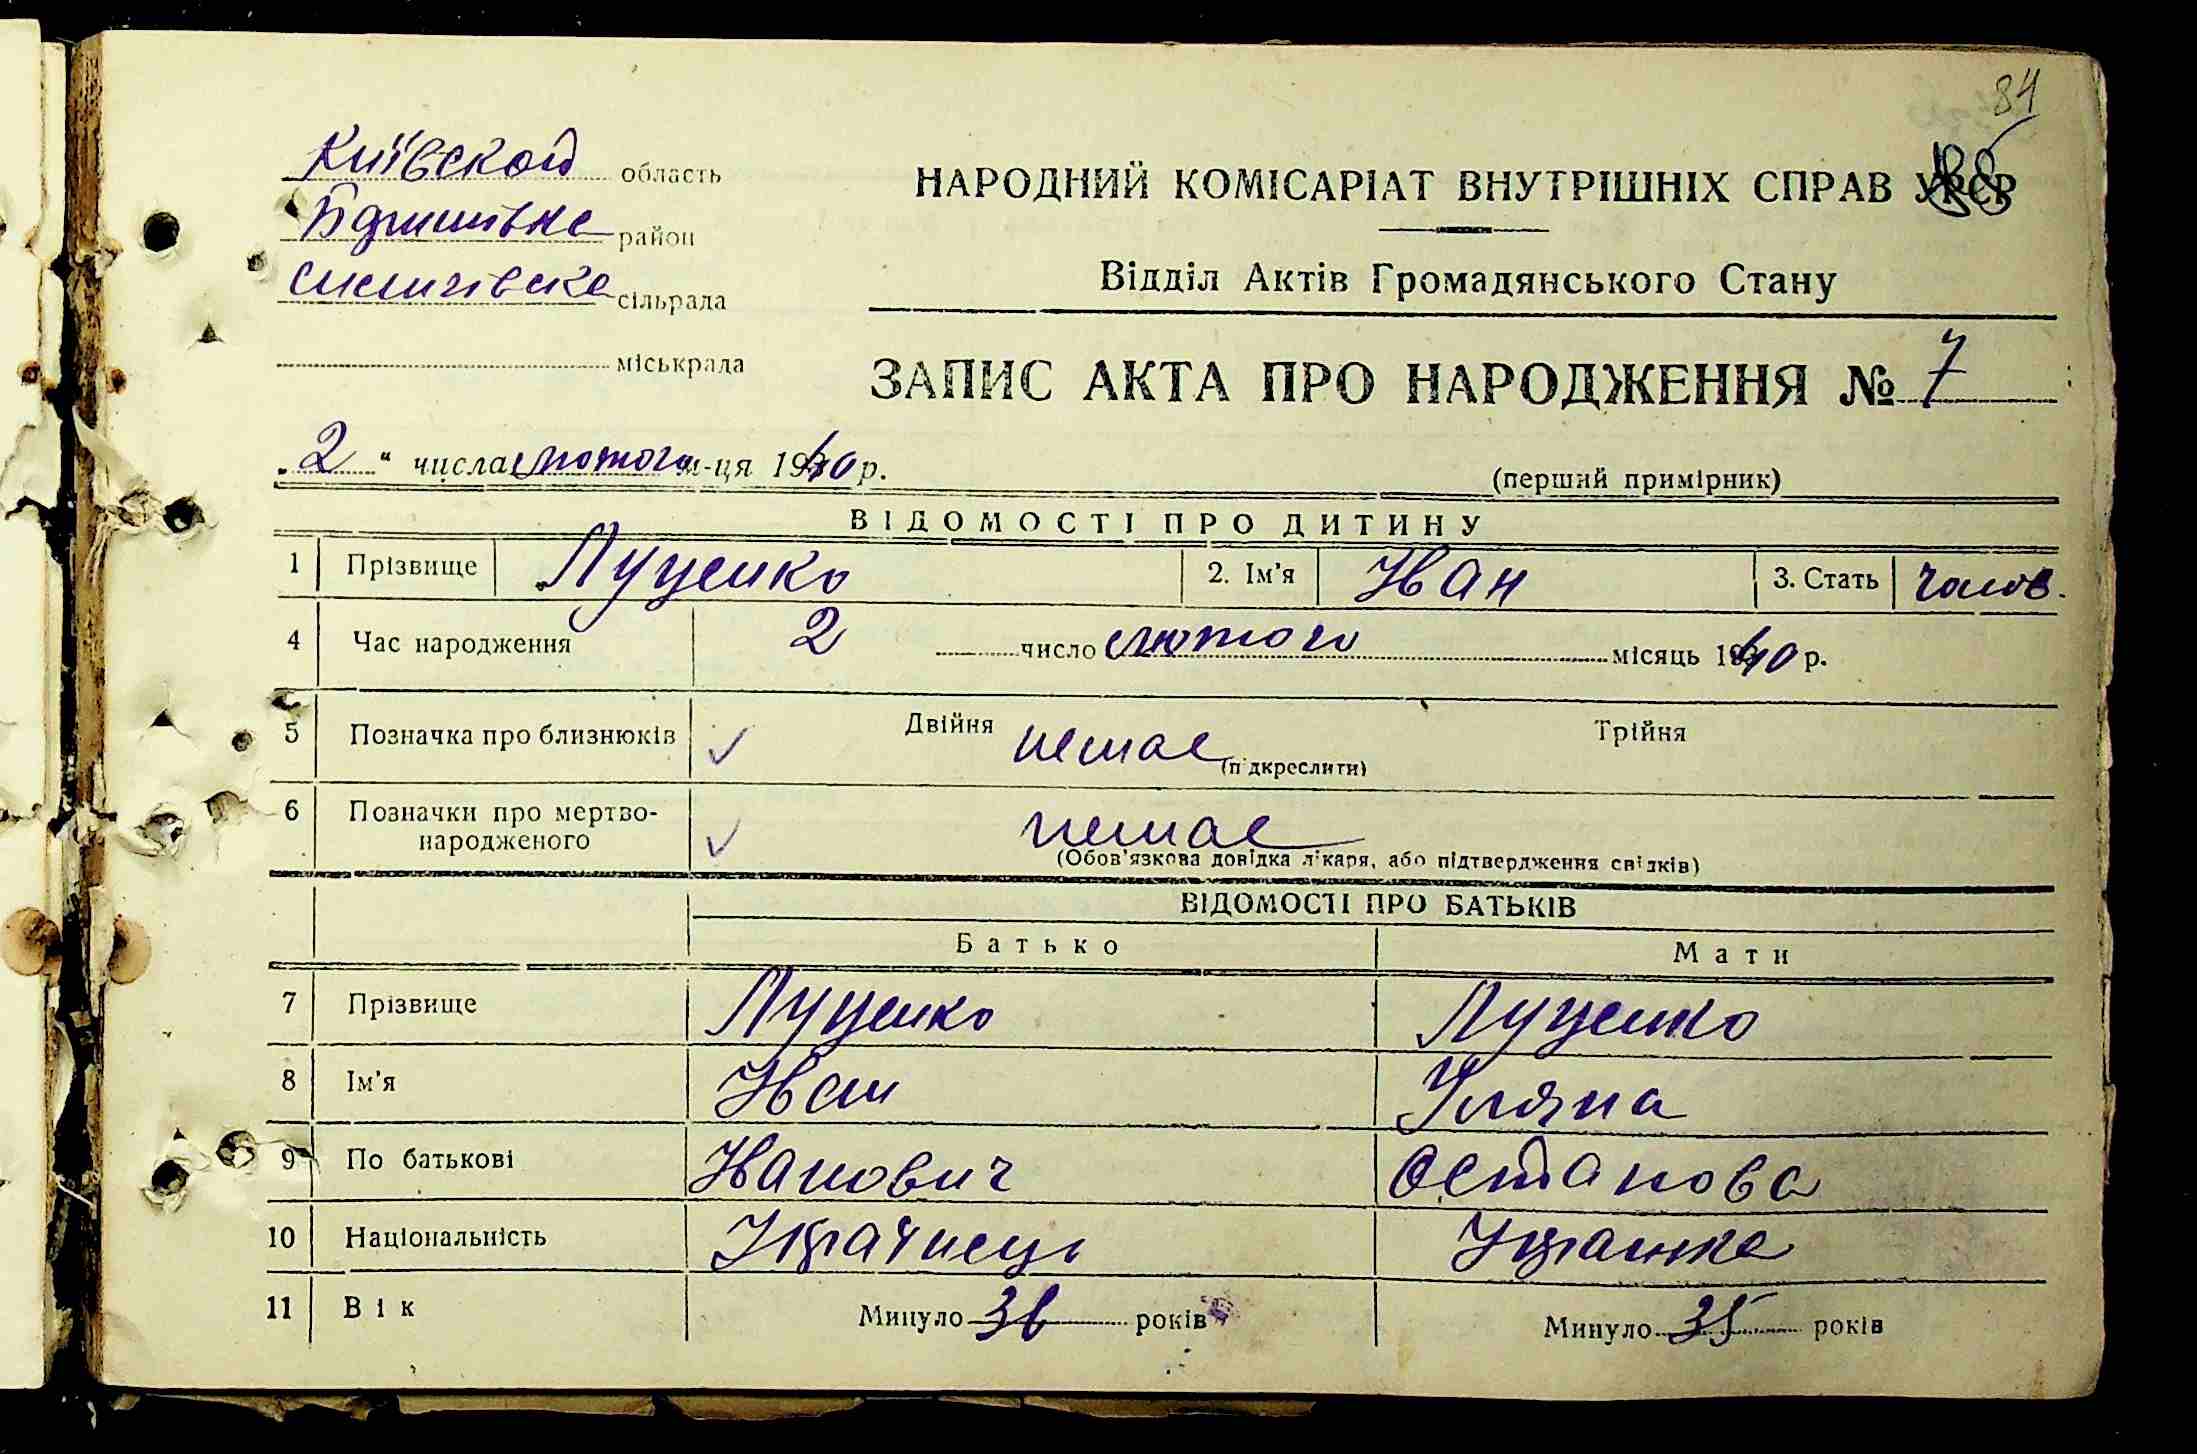 84
Київской область
НАРОДНИЙ КОМІСАРІАТ ВНУТРІШНІХ СПРАВ УРСР
район
Відділ Актів Громадянського Стану
сільрада
міськрада
ЗАПИС АКТА ПРО НАРОДЖЕННЯ № 7
„2“ числа лютого м-ця 1940 р.
(перший примірник)
ВІДОМОСТІ ПРО ДИТИНУ
1 Прізвище Луценко 2. Ім'я Иван 3. Стать чолов.
4 Час народження 2 число лютого місяць 1940 р.
5 Позначка про близнюків ✓ Двійня немає (підкреслити) Трійня
6 Позначки про мертво-
народженого ✓ немає
(Обов'язкова довідка лікаря, або підтвердження свідків)
ВІДОМОСТІ ПРО БАТЬКІВ
Батько Мати
7 Прізвище Луценко Луценко
8 Ім'я Иван Уляна
9 По батькові Иванович Остапова
10 Національність Українець Українка
11 Вік Минуло 36 років Минуло 35 років